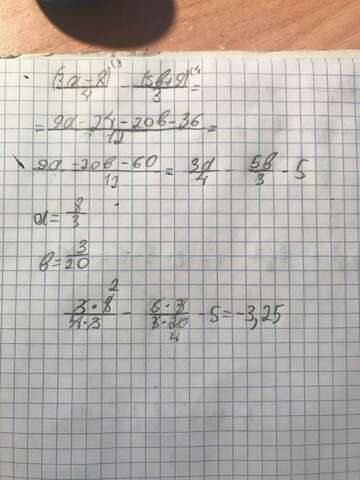 (3a-8)^(3 / 4 - (5b+9)^(4 / 3 =
= 9a-24-20b-36 / 12 =
9a-20b-60 / 12 = 3a/4 - 5b/3 - 5
a = 8/3
b = 3/20
2
3·8 / 4·3 - 5·3 / 3·20 - 5 = -3,25
4